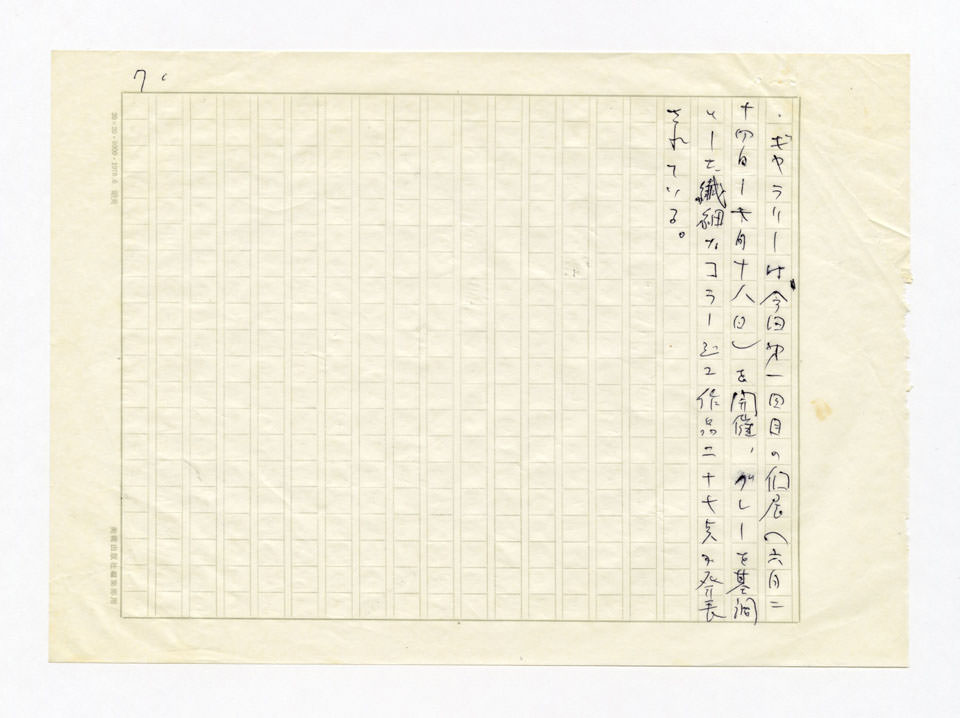 7
・ギャラリーは今回第一回目の個展(六月二
十四日ー七月十八日)を開催、グレーを基調
とした繊細なコラージュ作品二十七点が発表
されている。
美術出版社編集部用